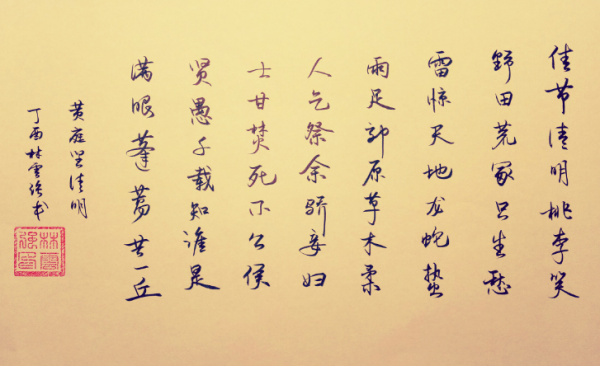 佳节清明桃李笑
野田荒冢只生愁
雷惊天地龙蛇蛰
雨足郊原草木柔
人乞祭余骄妾妇
士甘焚死不公侯
贤愚千载知谁是
满眼蓬蒿共一丘
黄庭坚清明
丁酉林雲强书